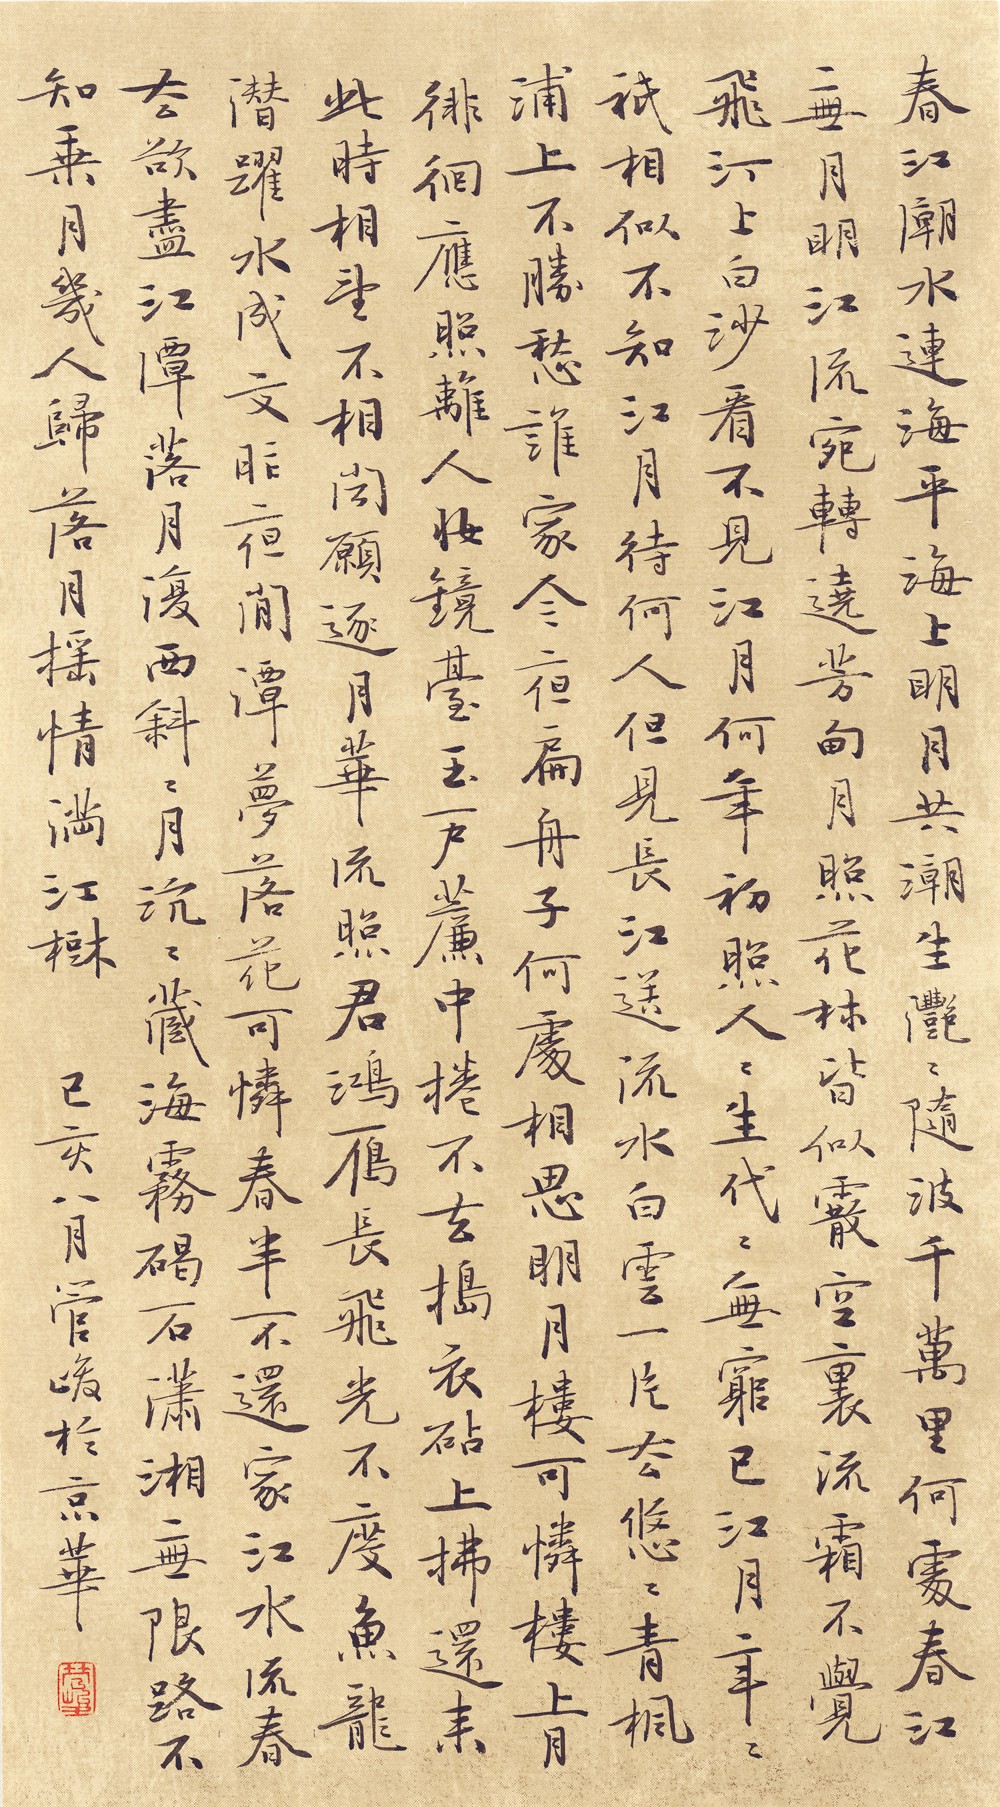 春江潮水連海平海上明月共潮生灩〻隨波千萬里何處春江
無月明江流宛轉遶芳甸月照花林皆似霰空裏流霜不覺
飛汀上白沙看不見江月何年初照人〻生代〻無窮已江月年〻
祇相似不知江月待何人但見長江送流水白雲一片去悠〻青楓
浦上不勝愁誰家今夜扁舟子何處相思明月樓可憐樓上月
徘徊應照離人妝鏡臺玉戶簾中捲不去搗衣砧上拂還来
此時相望不相聞願逐月華流照君鴻雁長飛光不度魚龍
潛躍水成文昨夜閒潭夢落花可憐春半不還家江水流春
去欲盡江潭落月復西斜〻月沉〻藏海霧碣石瀟湘無限路不
知乘月幾人歸落月搖情滿江樹 己亥八月管峻於京華